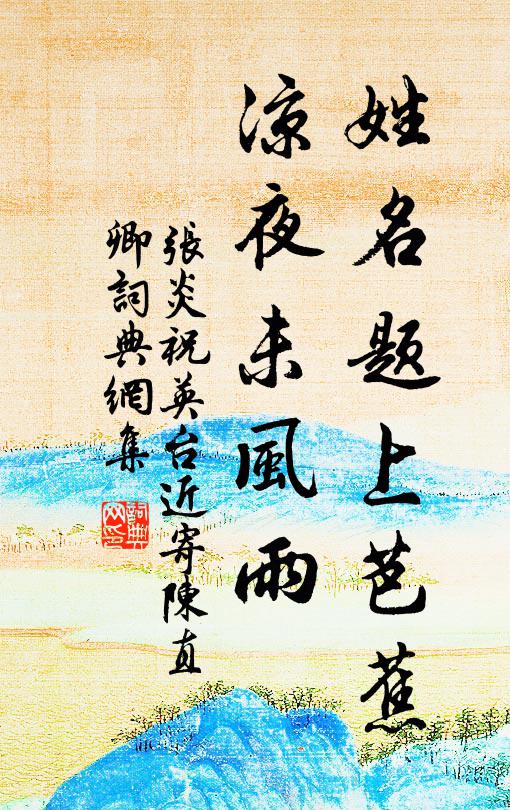 姓名題上芭蕉
凉夜未風雨
張炎祝英台近寄陳直
卿詞典網集
詞典